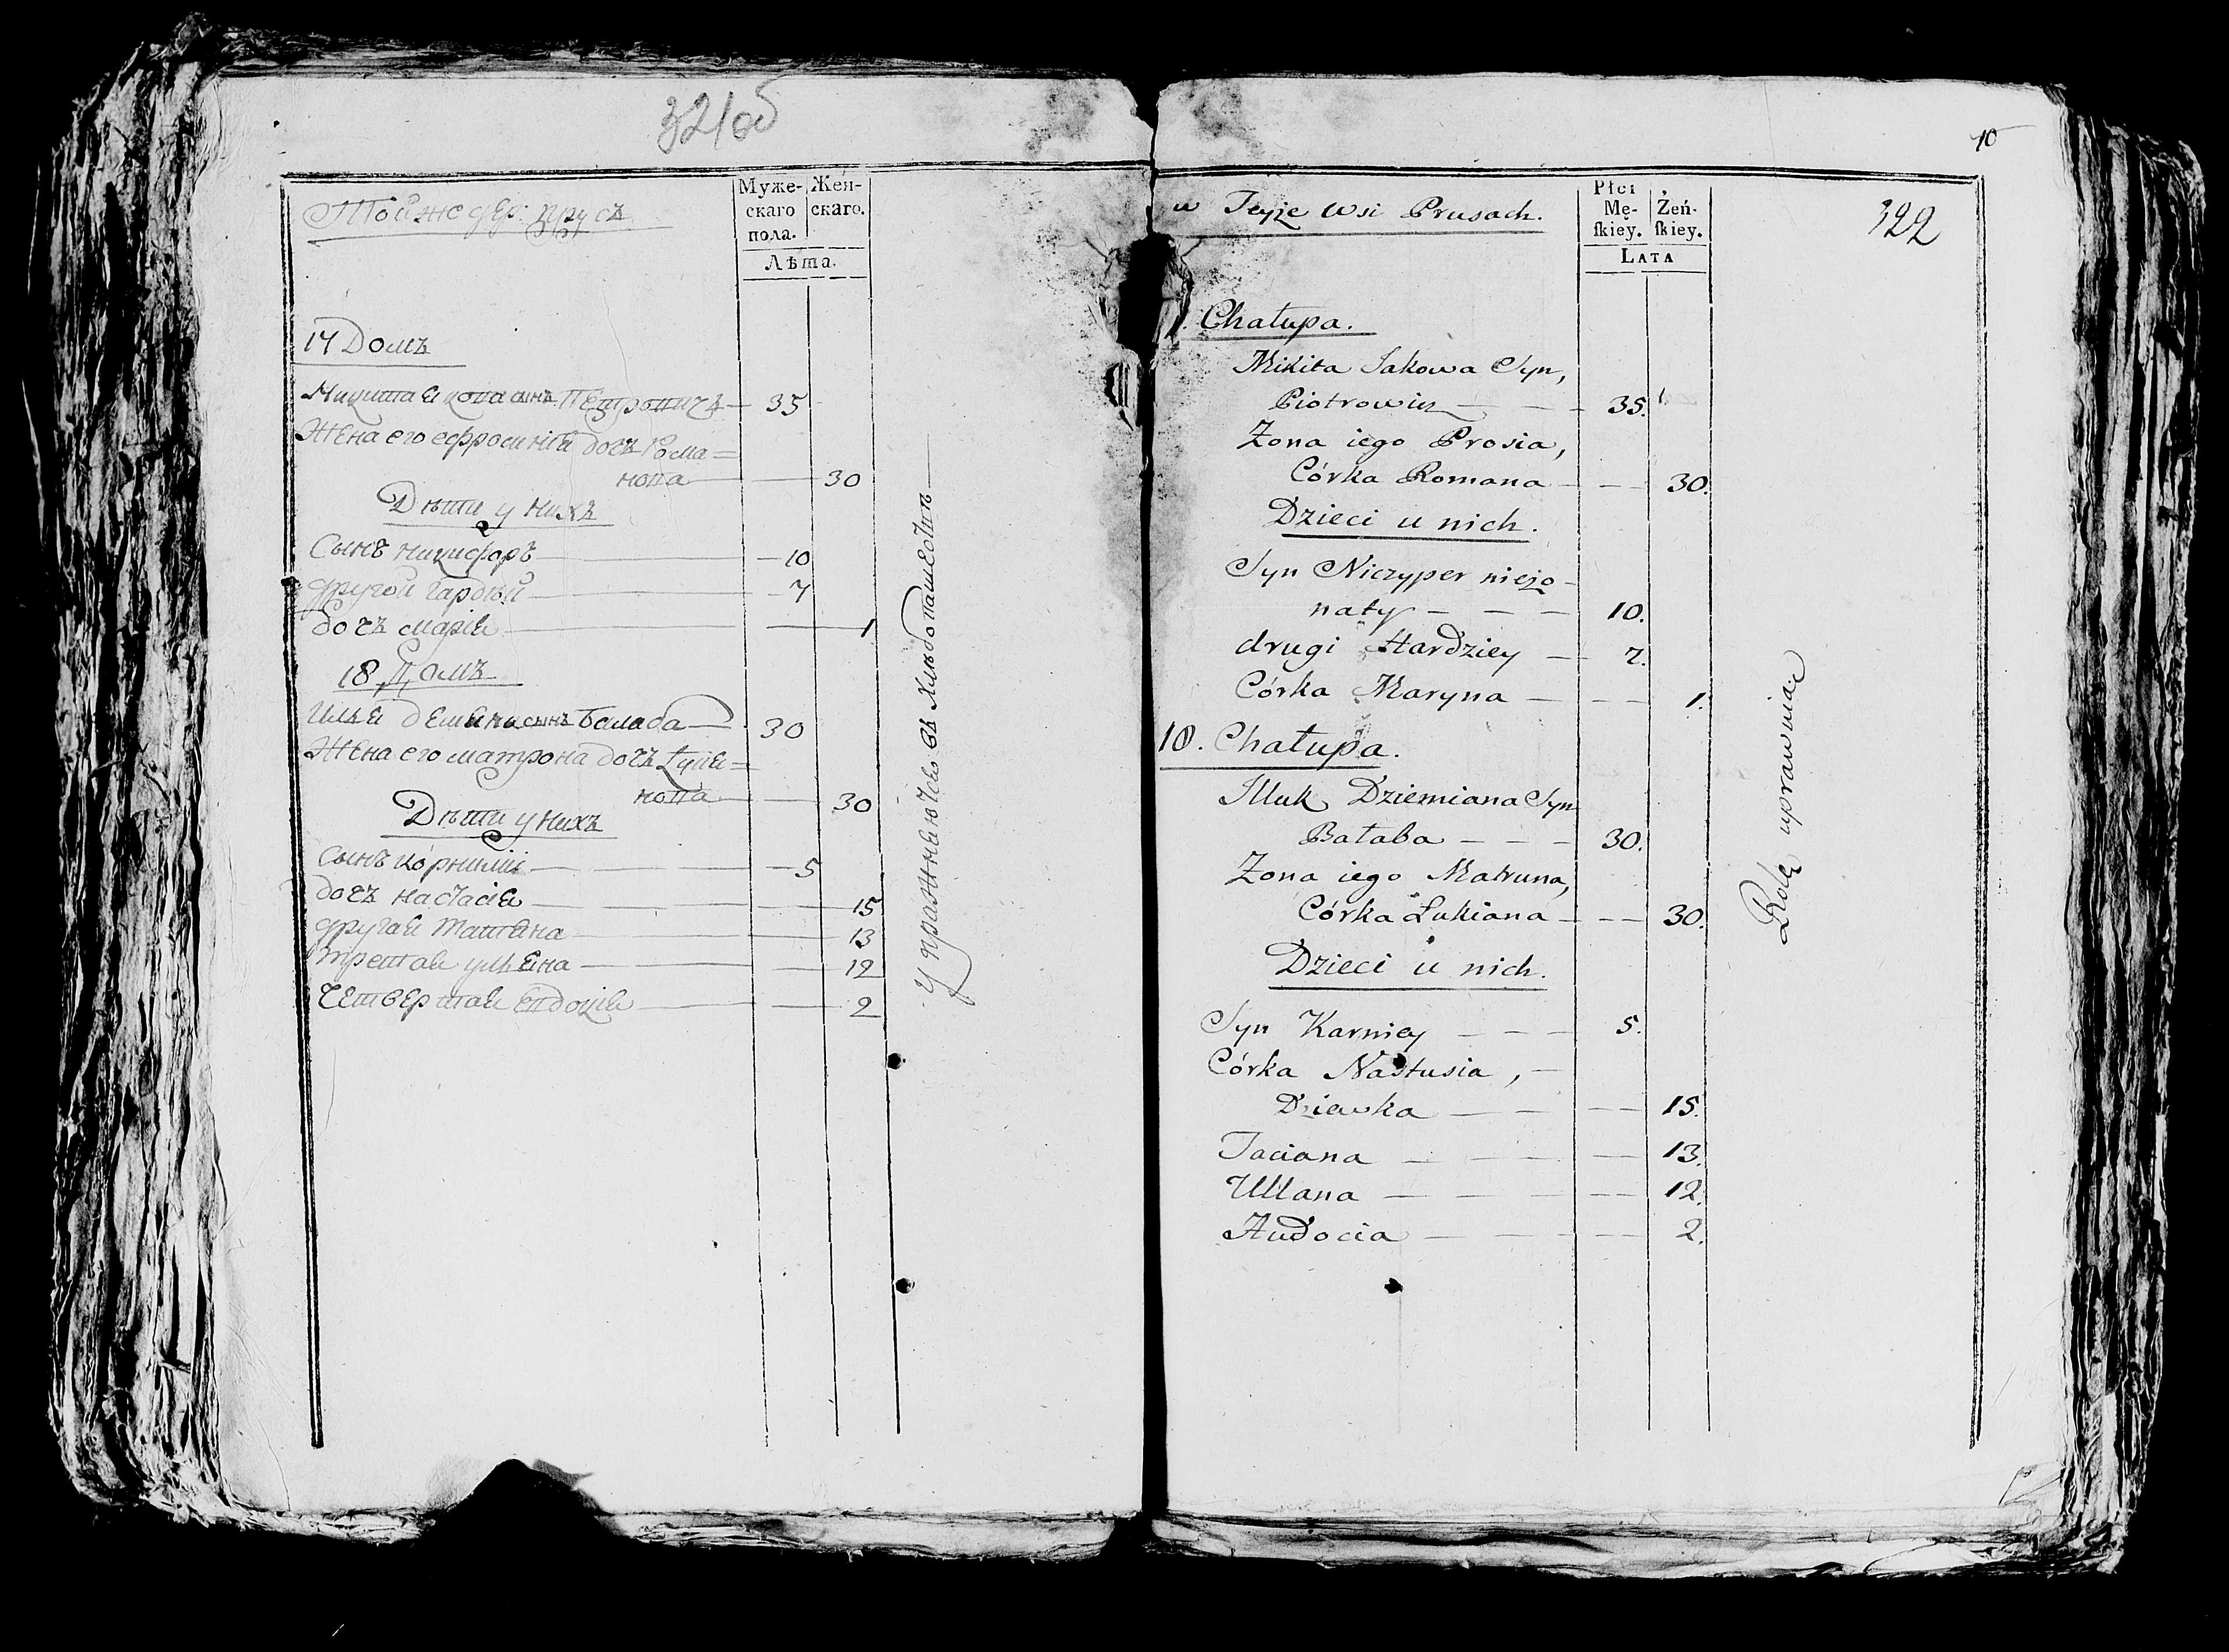 321об
Тойже дер: Прусъ
Муже-
скаго
пола.
Жен-
скаго.
Лѣта.
17 Домъ
Микита Якова сынъ Петровичъ — 35
Жена его ефросинія дочъ Рома=
нова — 30
Дѣти у нихъ
Сынъ никифоръ — 10
другой гардѣй — 7
дочъ марія — 1
18 Домъ
Илья демьяна сынъ Балаба — 30
Жена его матрона дочъ Лукъя=
нова — 30
Дѣти у нихъ
Сынъ корнилій — 5
дочъ настасія — 15
другая татьяна — 13
третая ульяна — 12
Четвертая евдокія — 2
Упражнѣючсь въ Хлѣбопашествѣ
10
322
w Teyże Wsi Prusach.
Płci
Mę-
skiey.
Żeń-
skiey.
LATA
Chałupa.
Mikita Jakowa Syn,
Piotrowicz — 35.
Żona iego Prosia,
Córka Romana — 30.
Dzieci u nich.
Syn Niczyper nieżo-
naty — 10.
drugi Hardziey — 7.
Córka Maryna — 1.
18. Chałupa.
Illuk Dziemiana Syn
Bałaba — 30.
Żona iego Matruna,
Córka Łukiana — 30.
Dzieci u nich.
Syn Karniey — 5.
Córka Nastusia, —
Dziewka — 15.
Taciana — 13.
Ullana — 12.
Audocia — 2.
Rolę uprawniaią